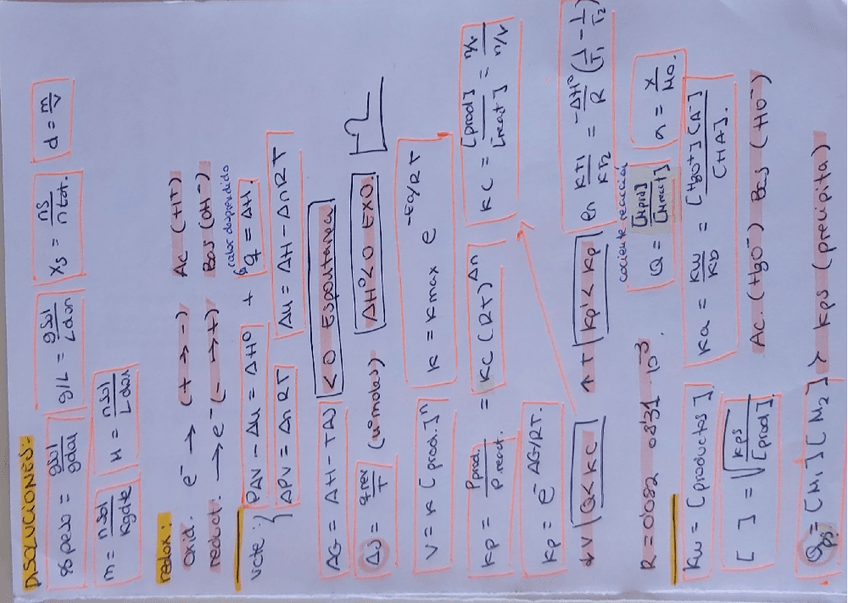 DISOLUCIONES:
% peso = gsol / gdon g/L = gsol / Ldon Xs = ns / n tot. d = m / v
m = nsol / Kgdte M = nsol / Ldon
redox:
oxid. e⁻ → (+ → -) Ac (H+)
reduct. → e⁻ (- → +) Bas (OH⁻)
calor desprendido
vcte: PΔV - Δu = ΔHº + q = ΔH.
ΔPV = ΔnRT Δu = ΔH - ΔnRT
ΔG = ΔH - TΔS < 0 Espontanea
ΔS = qrev / T (nºmoles) ΔHº < 0 EXO.
V = K [prod.]ⁿ K = Kmax e -Ea/RT
Kp = Pprod. / P react. = Kc (RT)Δn Kc = [prod] / [react] = n/v / n/v
Kp = e- ΔG/RT.
↓V Q < Kc ↑T Kp' < Kp ln KT1 / KT2 = -ΔHº / R (1/T1 - 1/T2)
cociente reaccion
R = 0'082 0'831 · 10⁻³ Q = [prod] / [react] α = x / Mo.
Kw = [productos] Ka = Kw / Kb = [H3O+] [A⁻] / [HA].
[ ] = √ Kps / [prod] Ac. (H3O⁻) Bas (HO⁻)
Qps = [M1] [M2] > Kps (precipita)